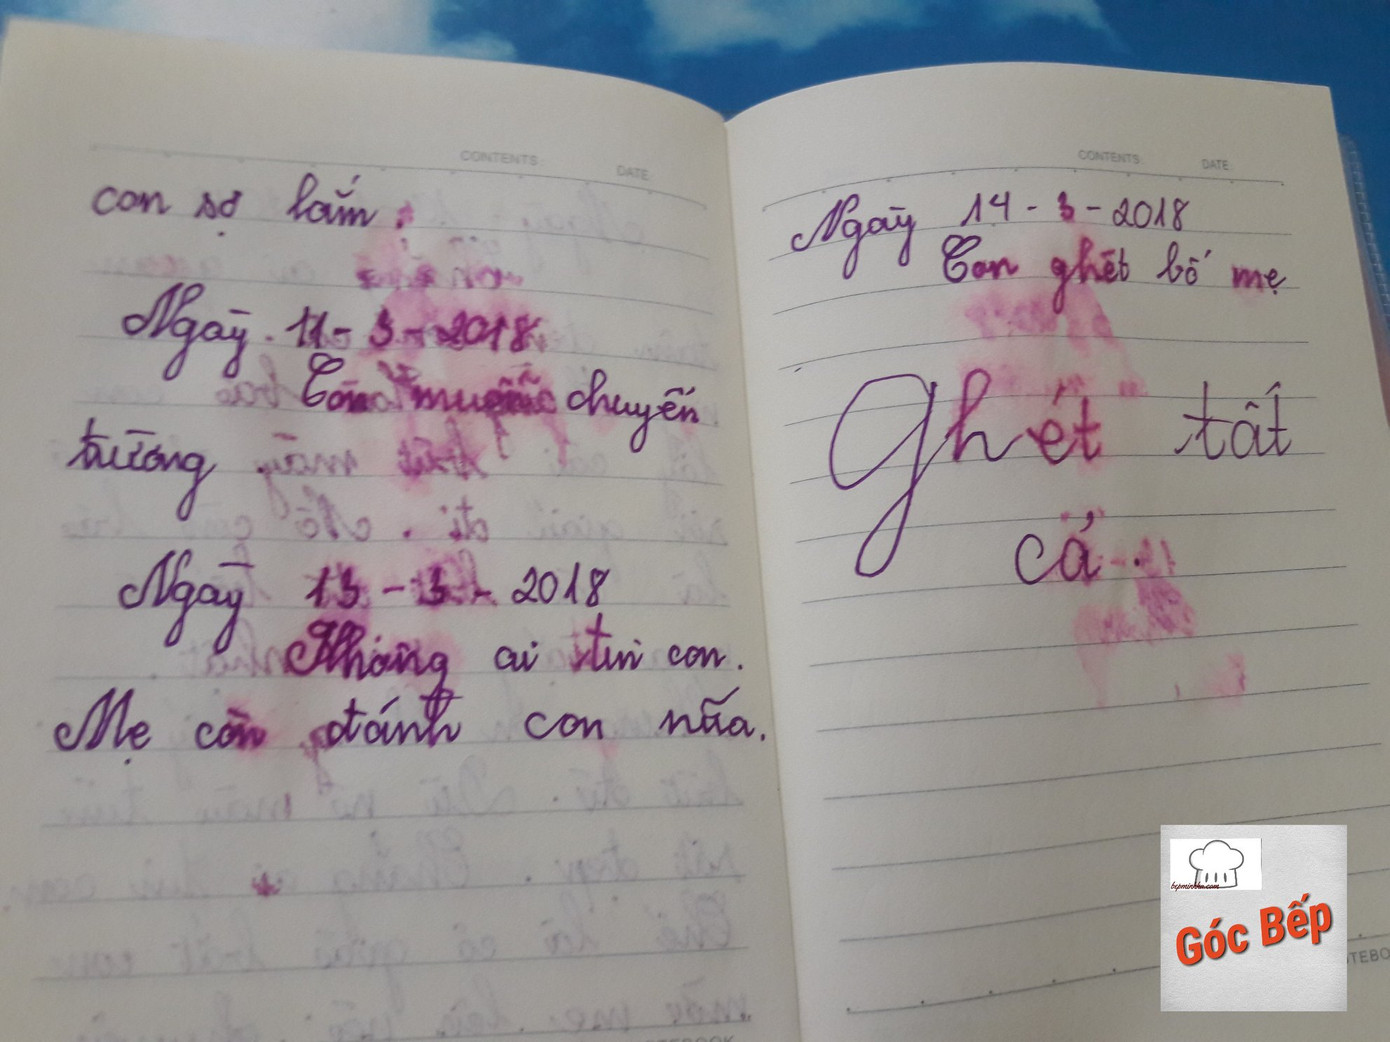 CONTENTS: DATE:
con sợ lắm.
Ngày 11-3-2018
Con muốn chuyển
trường
Ngày 13-3-2018
Không ai tin con.
Mẹ còn đánh con nữa.
CONTENTS: DATE:
Ngày 14-3-2018
Con ghét bố mẹ
Ghét tất
cả.
bepminhha.com
Góc Bếp